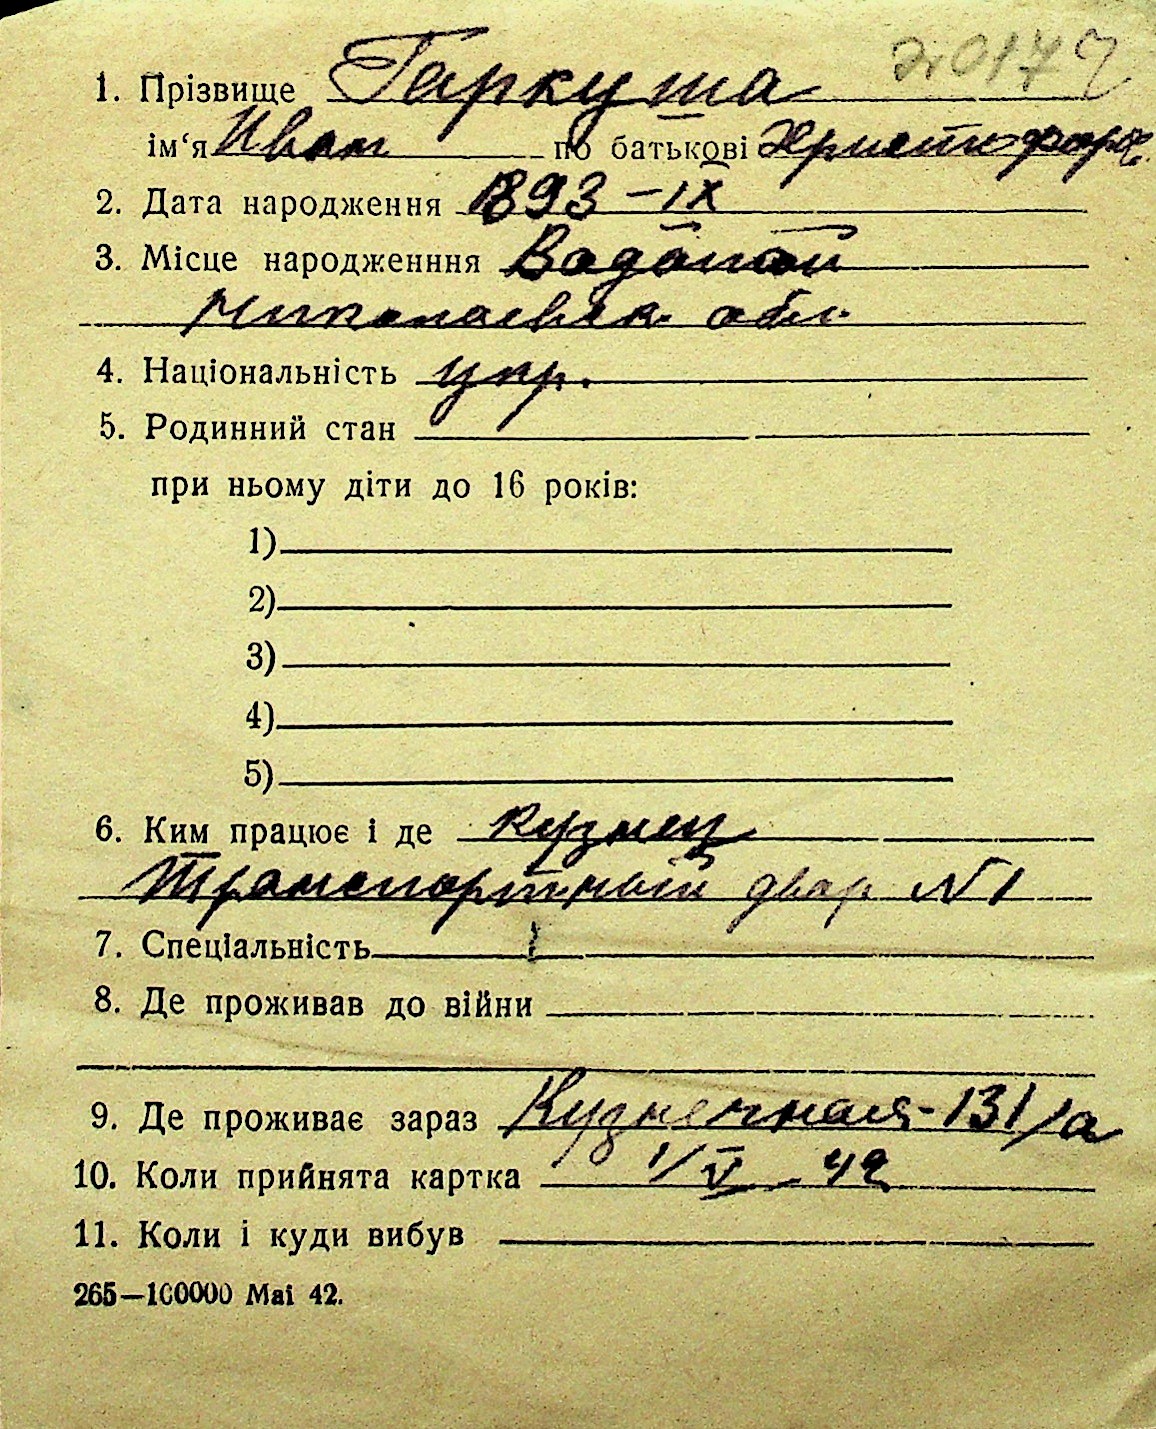 1. Прізвище Гаркуша
ім‘я Иван по батькові Христофоров.
2. Дата народження 1893 – IX
3. Місце народженння Водопой
Николаевск. обл.
4. Національність укр.
5. Родинний стан
при ньому діти до 16 років:
1)
2)
3)
4)
5)
6. Ким працює і де кузнец
Транспортный двор N1
7. Спеціальність
8. Де проживав до війни
9. Де проживає зараз Кузнечная-131/а
10. Коли прийнята картка 1/V – 42
11. Коли і куди вибув
265—100000 Mai 42.